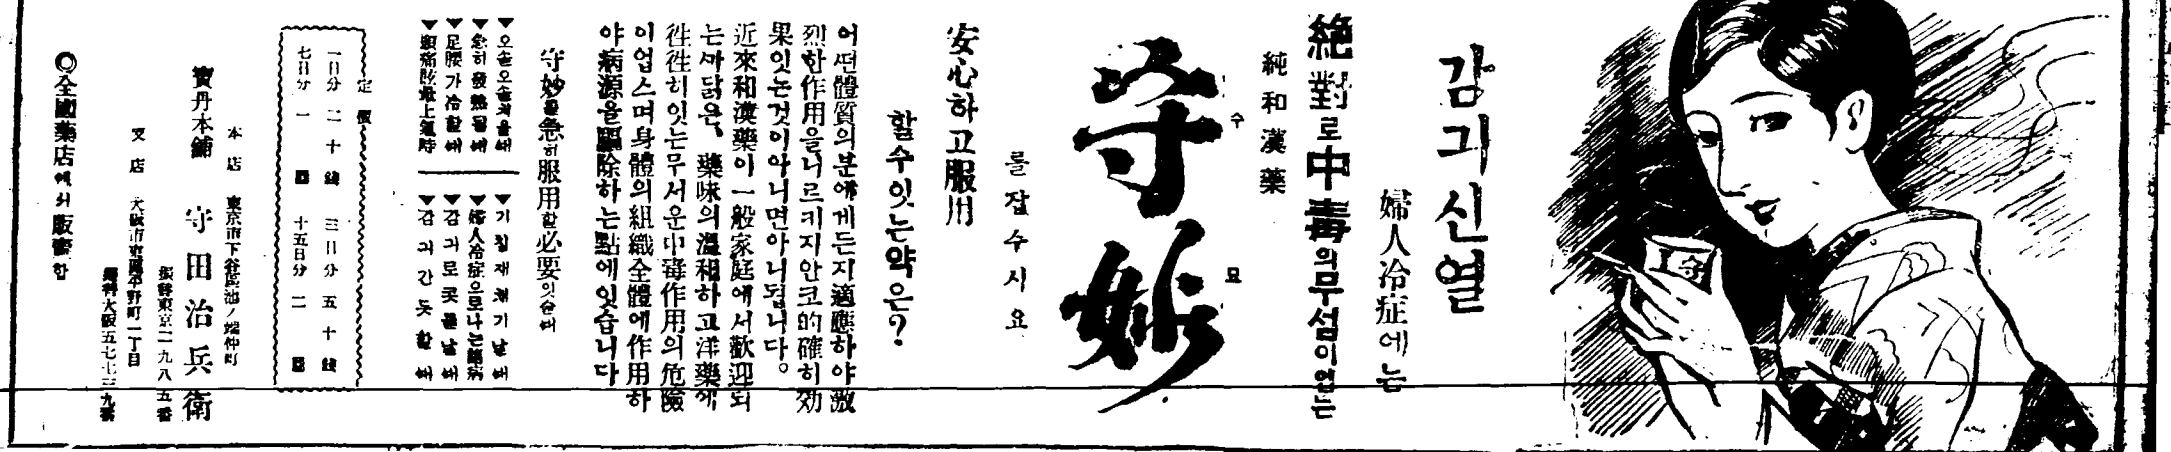 감긔신열
婦人冷症에는
絶對로中毒의무섬이업는
純和漢藥
守妙
수
묘
를잡수시요
安心하고服用
할수잇는약은?
어떤體質의분에게든지適應하야激
烈한作用을니르키지안코的確히効
果잇는것이아니면아니됩니다。
近來和漢藥이一般家庭에서歡迎되
는까닭은、藥味의溫和하고洋藥에
徃徃히잇는무서운中毒作用의危險
이업스며身體의組織全體에作用하
야病源을驅除하는點에잇습니다
守妙를急히服用할必要잇슬때
▼오슬오슬치울때
▼急히發熱될때
▼足腰가冷할때
▼頭痛眩暈上氣時
▼기침재채기날때
▼婦人冷症으로나는諸病
▼감긔로콧물날때
▼감긔간듯할때
定價
一日分 二十錢 三日分 五十錢
七日分 一圓 十五日分 二圓
本店 東京市下谷區池ノ端仲町
振替東京二一九八五番
寶丹本舖 守田治兵衛
支店 大阪市東區平野町一丁目
振替大阪五七七三九番
◎全國藥店에서販賣함